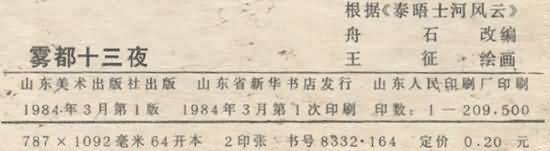 根据《泰晤士河风云》
舟 石 改编
雾都十三夜 王 征 绘画
山东美术出版社出版 山东省新华书店发行 山东人民印刷厂印刷
1984年3月第1版 1984年3月第1次印刷 印数：1—209,500
787×1092毫米64开本 2印张 书号8332·164 定价 0.20 元